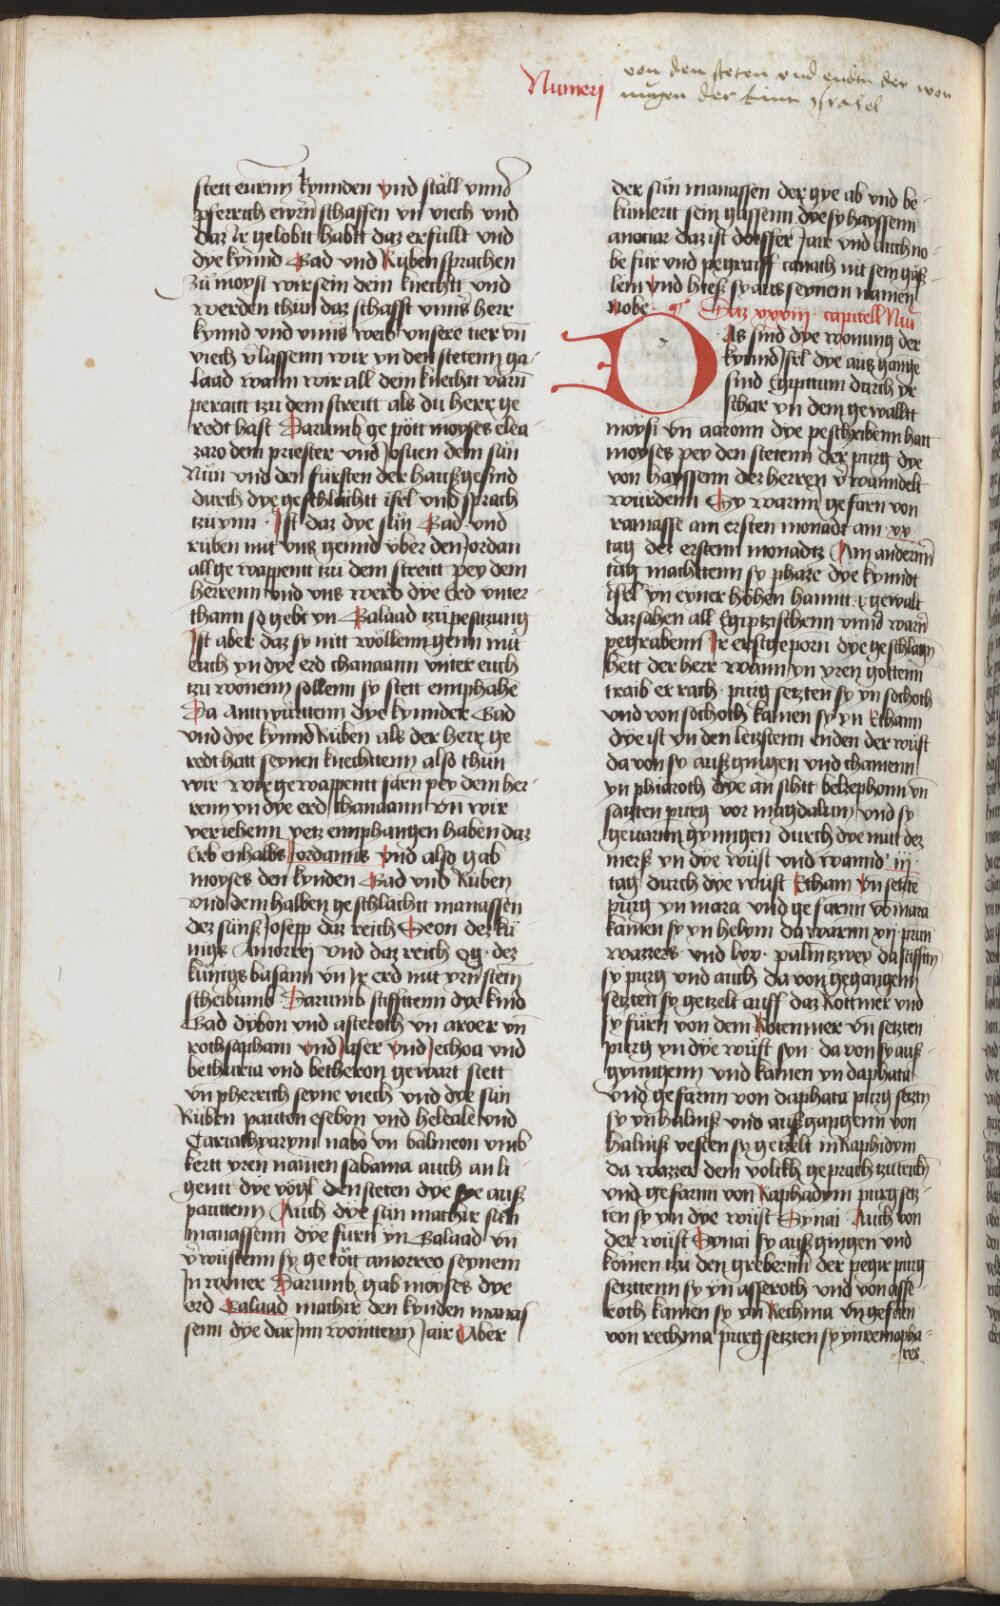 Numerj
von den steten vnd enden der won
nūgen der kint jsrahel
stett eurnn kynnden vnd ställ vnnd
pferrich ewrn schaffen vn viech vnd
daz Ir gelobtt habtt daz erfullt vnd
dye kynnd Gad vnd Rüben sprachen
zü moysi wir sein dem knechtt vnd
werden thün daz schafft vnns herr
kynnd vnd vnns weib vnsere tier vn
viech v̄lassenn wir yn den stetenn ga-
laad wann wir all dein knechtt varn
peraitt tzu dem streitt als du herr ge
redt hast Darumb ge pott moyses elea
zaro dem priester vnd Josuen dem sün
Nün vnd den fürsten der haußgesind
durch dye geschlächtt isrl vnd sprach
tzu ynn Ist daz dye sün Gad vnd
rüben mit vns gennd vber den Jordan
all ge wappentt tzu dem streitt pey dem
herrenn vnd vns werd dye Erd vnter-
thann so gebt yn Galaad tzü pesitzung
Ist aber daz sy nitt wöllenn genn mit
euch yn dye erd chanaann vnter euch
tzu wonenn sollenn sy stett emphahe
Da Anttwürttenn dye kynnder Gad
vnd dye kynnd Rüben als der herr ge
redt hatt seynen knechttenn also thun
wir wir ge wappentt farn pey dem her-
renn yn dye erd chanaann vn wir
veriehenn yetz emphangen haben daz
Erb enhalbs Jordanns vnd also gab
moyses den kynden Gad vnd Rüben
vnd dem halben ge schlächtt manassen
dez sünß Josepp daz reich Seon dez kü
nigs Amorrej vnd daz reich og dez
künigs basann vn Ir erd mit yrn stetn
scheibumb Darumb stiffttenn dye kind
Gad dybon vnd asteroth vn aroer vn
roth sapham vnd Jaser vnd Jechoa vnd
bethnria vnd betheron gewart stett
vn pherrich seyne viech vnd dye sün
Rüben pauten esebon vnd heleale vnd
Cariathyarym nabo vn balmeon vmb
kertt yren namen sabama auch an li
gentt dye vogl den steten dye sye auß
pauttenn Auch dye sün machir sün
manassenn dye fürn yn Galaad vn
v̄wüstenn sy ge tött amorreo seynem
In woner Darumb gab moyses dye
erd Galaad machir den kynden manas
senn dye dar Inn wonttenn Jair Aber
der sün manassen der gye ab vnd be-
kümertt sein gassenn dye sy hayssenn
anociar daz ist dorffer Jair vnd auch no-
be für vnd pegraiff canath mit sein gäß
lein vnd hieß sy aus seynem namen
Nobe Daz xxxiij capitell Nu
Das sind dye wonung der
kynnd Isrl dye aus gange
sind Egipttum durch yr
schar yn dem ge walltt
moysi vn aaronn dye peschribenn hatt
moyses pey den stetenn der purg dye
von hayssenn dez herren v̄wanndelt
würdenn Sy warnn ge farn von
ramasse am ersten monadt am xv
tag des erstenn monadtz Am andernn
tag machttenn sy phaze dye kynndt
isrl yn eyner höhen hanntt i gewalt
daz sahen all Egiptzischenn vnnd warn
pegrabenn Ir erstgeporn dye ge schlagn
hett der herr wann yn yren gottenn
traib er rach purg setzten sy yn sochoth
vnd von sochoth kamen sy yn Ethann
dye ist yn den letzstenn enden der wüst
da von sy auß gingen vnd chamenn
yn phiaroth dye an sihtt belzephonn vn
satzten purg vor magdalum vnd sy
ge warnn gynngen durch dye mitt dez
merß yn dye wüst vnd wannd iij
tag durch dye wüst Etham vn setzte
purg yn mara vnd ge farnn vō mara
kamen sy yn helym da warnn xij prun
wazzers vnd lxx palmtzwey da stifftn
sy purg vnd auch da von gegangenn
setzten sy getzelt auff daz Rottmer vnd
sy fürn von dem Rotenmer vn setzten
purg yn dye wüst syn da von sy auß-
gynngenn vnd kamen yn daphata
vnd ge farnn von daphata purg setztn
sy yn halmß vnd auß gangenn von
halmß vesten sy ge tzelt in Raphidym
da wazzer dem volckh ge prach tzu trickn
vnd ge farnn von Raphadym purg setz-
ten sy yn dye wüst Synai Auch von
der wüst Synai sy auß gingen vnd
komen tzü den grebernn der pegir purg
setzttenn sy yn asseroth vnd von asse
roth kamen sy yn Rechma vn ge faren
von rechma purg setzten sy yn remopha-
res